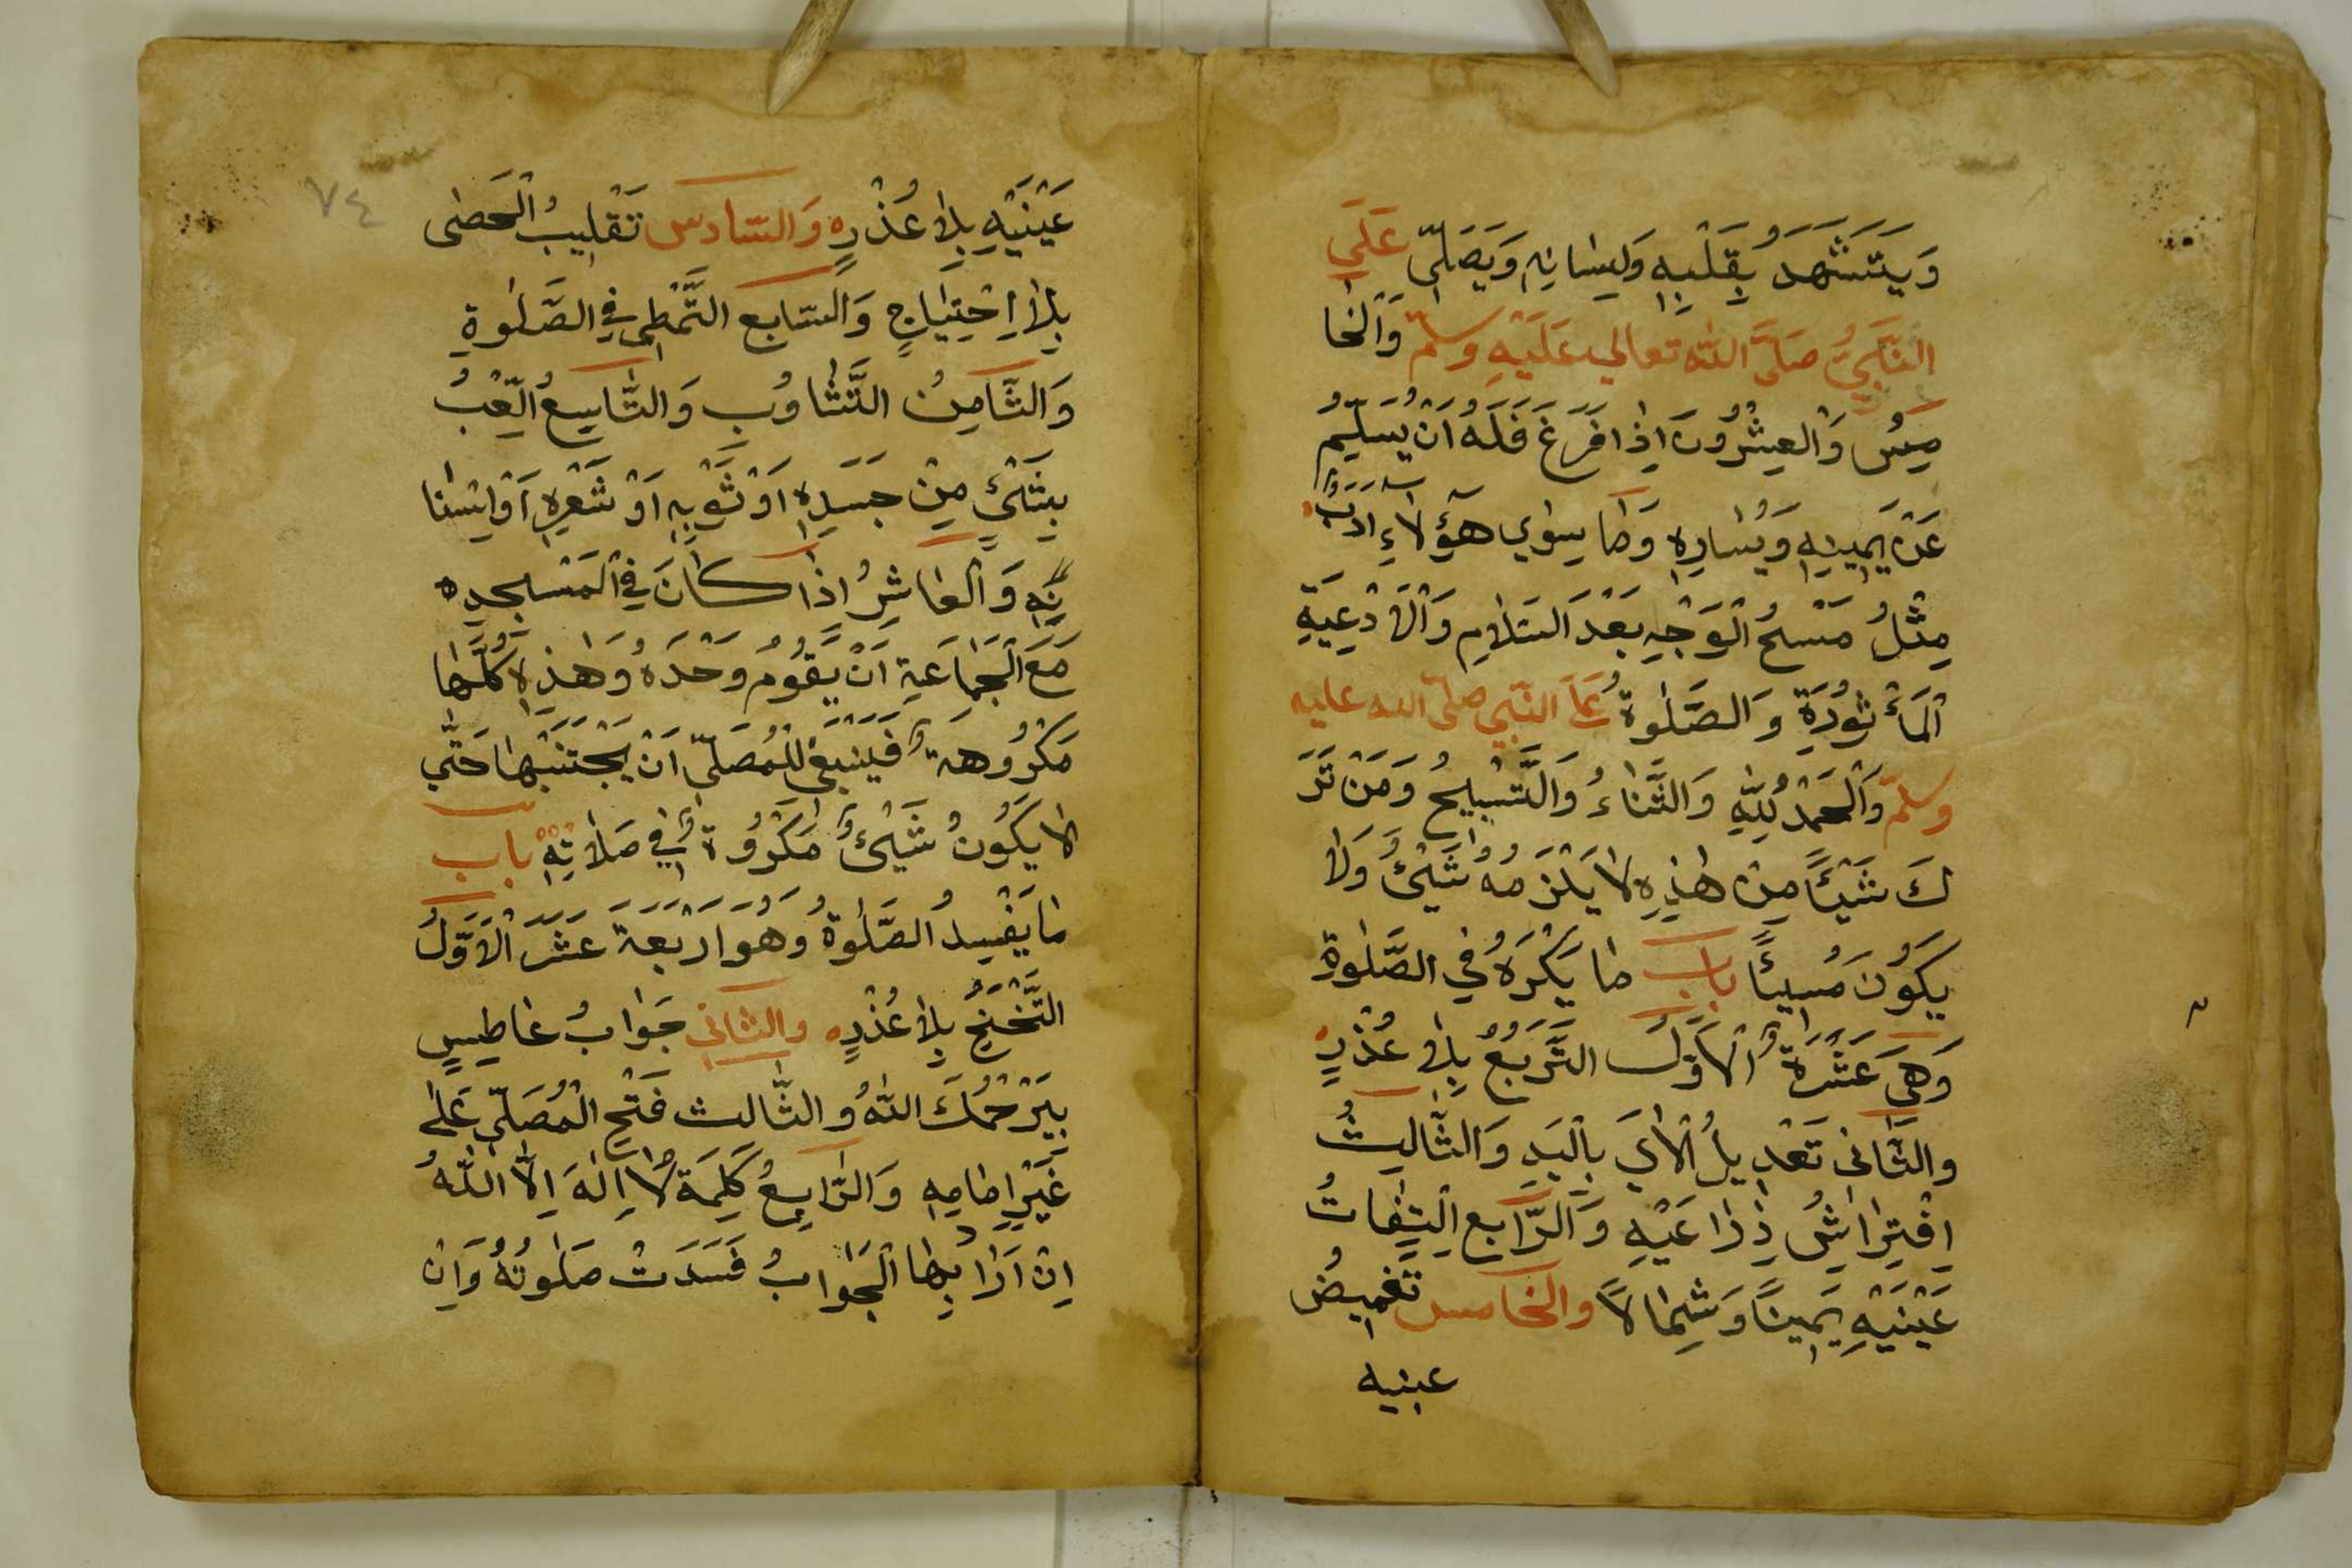 وَيَتَشَهَّدَ بِقَلْبِهِ وَلِسَانِهِ وَيُصَلِّي عَلَي
النَّبِيِّ صَلَّي اللّه تعالي عَلَيْهِ وسلّم وَالْخَا
مِسُ وَالْعِشْرُونَ اِذَا فَرَغَ فَلَهُ اَنْ يُسَلِّمُ
عَنْ يَمِينِهِ وَيَسَارِهِ وَمَا سِوٰي هٰؤُلَاءِ اَدَبٌ
مِثْلُ مَسْحُ الْوَجْهِ بَعْدَ السَّلَامِ وَالْاَدْعِيَةِ
الْمَأْثُورَةِ وَالصَّلٰوةُ عَلَي النَّبِي صلّي الله عليه
وسلّم وَالْحَمْدُ لِلّٰهِ وَالثَّنَاءُ وَالتَّسْبِيحُ وَمَنْ تَرَ
كَ شَيْئًا مِنْ هٰذِهِ لَا يَلْزَمُهُ شَيْئٌ وَلَا
يَكُونَ مُسِيئًا باب مَا يَكْرَهُ فِي الصَّلٰوةِ
وَهِيَ عَشَرَةٌ اَلْاَوَّلُ التَّرَبُّعُ بِلَا عُذْرٍ
وَالثَّانِي تَعْدِيلُ الْاٰيِ بِالْيَدِ وَالثَّالِثُ
اِفْتِرَاشُ ذِرَاعَيْهِ وَالرَّابِع اِلْتِفَاتُ
عَيْنَيْهِ يَمِينًا وَشِمَالًا وَالْخَامس تَغْمِيضُ
عينيه
٧٤
عَيْنَيْهِ بِلَا عُذْرٍ وَالسَّادس تَقْلِيبُ الْحَصٰى
بِلَا اِحْتِيَاجٍ وَالسَّابع التَّمَطِّي فِي الصَّلٰوةِ
وَالثَّامِنُ التَّثَاوُبِ وَالتَّاسِعُ الَّعِبُ
بِشَيْئٍ مِنْ جَسَدِهِ اَوْ ثَوْبِهِ اَوْ شَعْرِهِ اَوْ اَسْنَا
نِهِ وَالْعَاشِرُ اِذَا كَانَ فِي الْمَسْجِدِ
مَعَ الْجَمَاعَةِ اَنْ يَقُومُ وَحْدَهُ وَهٰذِهِ كُلُّهَا
مَكْرُوهَةٌ فَيَنْبَغِي لِلْمُصَلِّي اَنْ يَجْتَنِبَهَا حَتّٰي
لَا يَكُونُ شَيْئٌ مَكْرُوهٌ فِي صَلَاتِهِ باب
مَا يُفْسِدُ الصَّلٰوةُ وَهُوَ اَرْبَعَةَ عَشَرَ اَلْاَوَّلُ
التَّنَحْنُحُ بِلَا عُذْرٍ والثّاني جَوَابُ عَاطِسٍ
بِيَرْحَمُكَ اللّٰهُ وَالثَّالث فَتْحِ الْمُصَلِّي عَلٰى
غَيْرِ اِمَامِهِ وَالرَّابِعُ كَلِمَةُ لَا اِلٰهَ اِلَّا اللّٰهُ
اِنْ اَرَادَ بِهَا الْجَوَابُ فَسَدَتْ صَلٰوتُهُ وَاِنْ